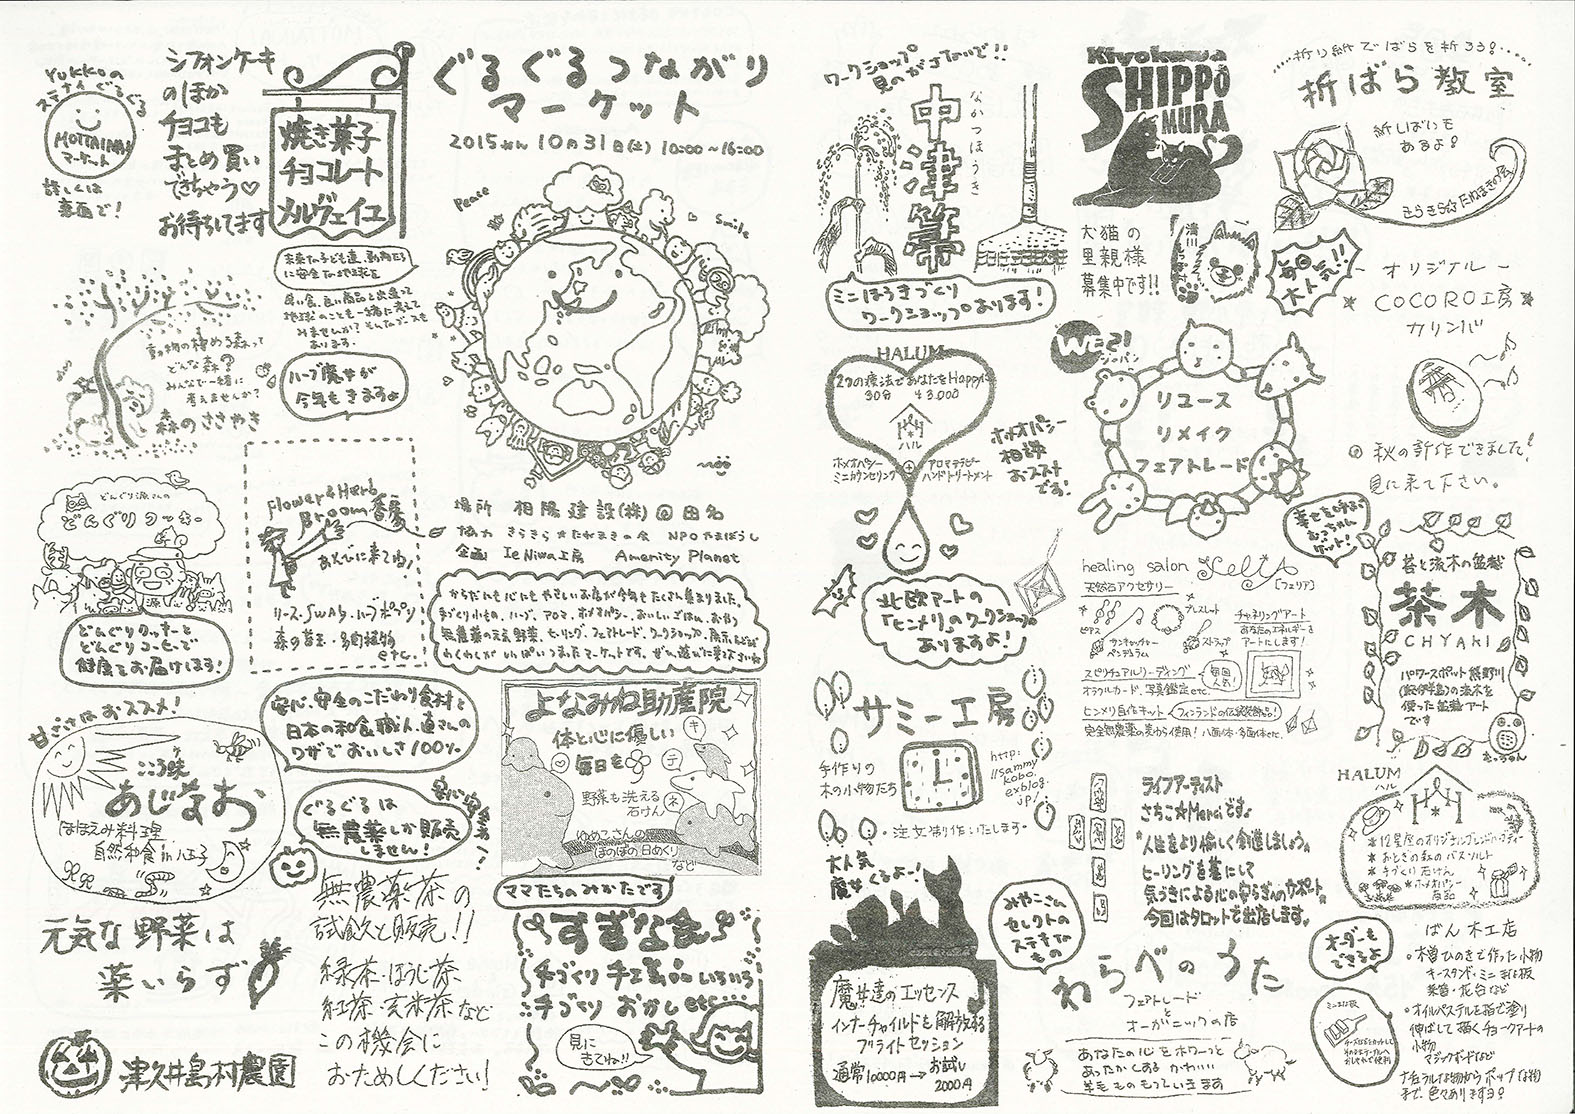 Yukkoの
ステナイぐるぐる
MOTTAINAI
マーケット
詳しくは
裏面で!
シフォンケーキ
のほか
チョコも
まとめ買い
できちゃう♡
お待ちしてます
焼き菓子
チョコレート
メルヴェイユ
ぐるぐるつながり
マーケット
2015ねん 10月31日(土) 10:00~16:00
Peace
Smile
未来の子ども達、動物たち
に安全な地球を
良い食、良い商品と出逢って
地球のことも一緒に考えて
みませんか?そんなブースも
あります。
ハーブ魔女が
今年もきますよ
動物の棲める森って
どんな森?
みんなで一緒に
考えませんか?
森のささやき
どんぐり源さんの
どんぐりクッキー
源
どんぐりクッキーと
どんぐりコーヒーで
健康をお届けします!
Flower & Herb
Broom 香房
あそびに来てね!
リース・SWAG・ハーブポプリ
森の苔玉・多肉植物
etc.
場所 相陽建設(株)@田名
協力 きらきら☆たねまきの会 NPOやまぼうし
企画 IeNiwa工房 Amenity Planet
からだにも心にもやさしいお店が今年もたくさん集まりました。
手づくり小もの、ハーブ、アロマ、ホメオパシー、おいしいごはん、おやつ
無農薬のお野菜、ヒーリング、フェアトレード、ワークショップ、展示などなど
わくわくがいっぱいつまったマーケットです。ぜひ遊びに来て下さいね
甘ざけはおススメ!
こころ味
あじなお
ほほえみ料理
自然和食 in 八王子
安心、安全のこだわり食材と
日本の和食職人、直さんの
ワザでおいしさ100%
ぐるぐるは
無農薬しか販売
しません!
よなみね助産院
体と心に優しい
毎日を
キ
テ
ネ
野菜も洗える
石けん
ゆめこさんの
ほのぼの日めくり
など
ママたちのみかたでる
元気な野菜は
薬いらず
津久井島村農園
無農薬茶の
試飲と販売!!
緑茶・ほうじ茶
紅茶・玄米茶など
この機会に
おためしください!
すぎな会
手づくり手工芸品いろいろ
手づくりおかしetc…
見に
きてね!!
ワークショップ
見のがさないで!!
なかつほうき
中津箒
ミニほうきづくり
ワークショップあります!
Kiyokawa
SHIPPO
MURA
犬猫の
里親様
募集中です!!
清川しっぽ村
折り紙でばらを折ろう!……
折ばら教室
紙しばいも
あるよ!
きらきら☆たねまきの会
毎回
大人気!!
オリジナル
COCORO工房
カリンバ
秋の新作できました!
見に来て下さい。
HALUM
2つの療法であなたをHappyに
30分 ¥3,000
ハル
ホメオパシー
ミニカウンセリング
アロマテラピー
ハンドトリートメント
ホメオパシー
相談
おススメ
です!
WE21
ジャパン
リユース
リメイク
フェアトレード
北欧アートの
「ヒンメリ」のワークショップも
ありますよ!
healing salon FeliA
[フェリア]
天然石アクセサリー
ピアス
サンキャッチャー
ペンデュラム
ブレスレート
ストラップ
チャネリングアート
あなたのエネルギーを
アートにします!
スピリチュアルリーディング
オラクルカード、写真鑑定etc.
毎回
人気!
ヒンメリ自作キット
フィンランドの伝統装飾品!
完全無農薬の麦わら使用!八面体・多面体etc.
苔と流木の盆栽
茶木
CHYAKI
パワースポット熊野川
(紀伊半島)の流木を
使った盆栽アート
です
サミー工房
手作りの
木の小物たち
http:
//sammy
kobo.
exblog.
jp/
・注文制作いたします・
大人気
魔女くるよー!
魔女達のエッセンス
インナーチャイルドを解放する
フライトセッション
通常10000円→お試し
2000円
みやこさん
セレクトの
ステキな
もの
ライフアーティスト
さちこ☆Merciです♪
"人生をより愉しく創造しましょう"
ヒーリングを基にして
気づきによる心の安らぎのサポート。
今回はタロットで出店します。
わらべのうた
フェアトレード
と
オーガニックの店
あなたの心をホワーっと
あったかくする かわいい
羊毛ものもっていきます
HALUM
ハル
*12星座のオリジナルブレンドハーブティー
*おとぎの森のバスソルト
*手づくり石けん
*ホメオパシー
商品
オーダーも
できるよ
ばん木工店
・木曽ひのきで作った小物
キースタンド・ミニまな板
茶筒・花台など
・オイルパステルを指で塗り
伸ばして描くチョークアートの
小物
マジックボードなど
ナチュラルな物からポップな物
まで、色々ありますヨ!